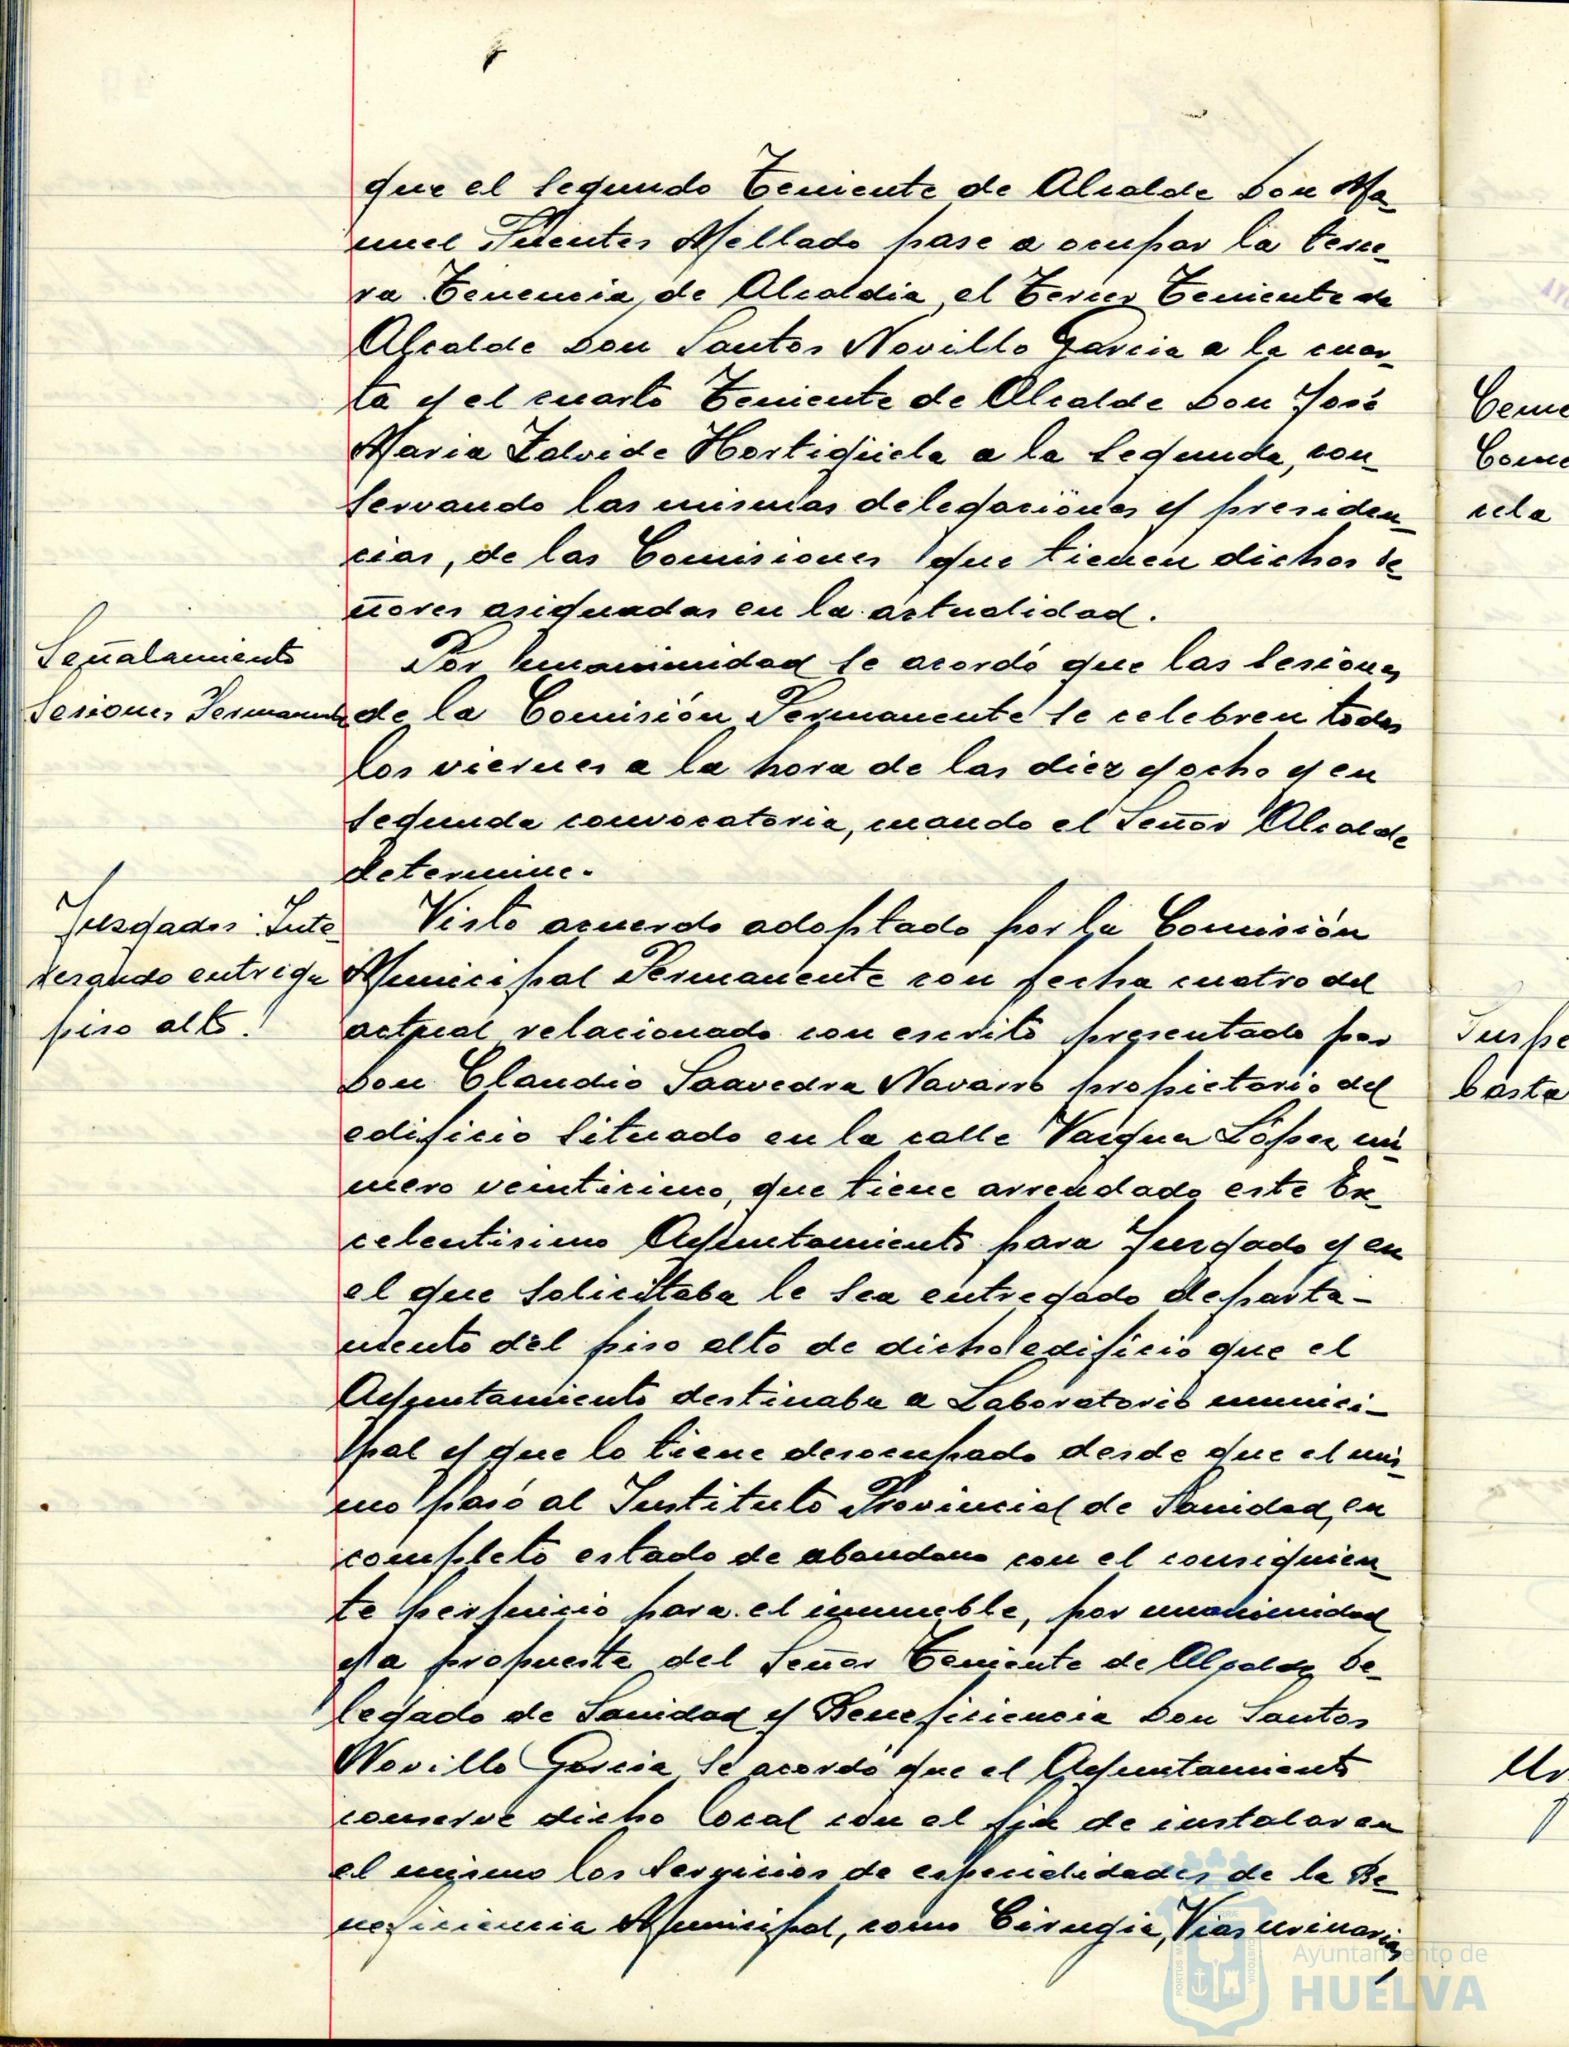 que el segundo Teniente de Alcalde Don Ma-
nuel Fuentes Mellado pase a ocupar la terce-
ra Tenencia de Alcaldia, el Tercer Teniente de
Alcalde Don Santos Novillo Garcia a la cuar-
ta y el cuarto Teniente de Alcalde Don José
Maria Zalvide Hortigüela a la segunda, con-
servando las mismas delegaciones y presiden-
cias, de las Comisiones que tienen dichos se-
ñores asignadas en la actualidad.
Señalamiento
Sesiones Permanente
Por unanimidad se acordó que las sesiones
de la Comisión Permanente se celebren todos
los viernes a la hora de las diez y ocho y en
segunda convocatoria, cuando el Señor Alcalde
determine.
Juzgados: Inte-
resando entrega
piso alto.
Visto acuerdo adoptado por la Comisión
Municipal Permanente con fecha cuatro del
actual relacionado con escrito presentado por
Don Claudio Saavedra Navarro propietario del
edificio situado en la calle Vazquez López nú-
mero veinticinco, que tiene arrendado este Ex-
celentisimo Ayuntamiento para Juzgado y en
el que solicitaba le sea entregado departa-
mento del piso alto de dicho edificio que el
Ayuntamiento destinaba a Laboratorio munici-
pal y que lo tiene desocupado desde que el mis-
mo pasó al Instituto Provincial de Sanidad, en
completo estado de abandono con el consiguien-
te perjuicio para el inmueble, por unanimidad
y a propuesta del Señor Teniente de Alcalde De-
legado de Sanidad y Beneficiencia Don Santos
Novillo Garcia se acordó que el Ayuntamiento
conserve dicho local con el fin de instalar en
el mismo los servicios de especialidades de la Be-
neficiencia Municipal, como Cirugia, Vias urinarias,
Ayuntamiento de
HUELVA